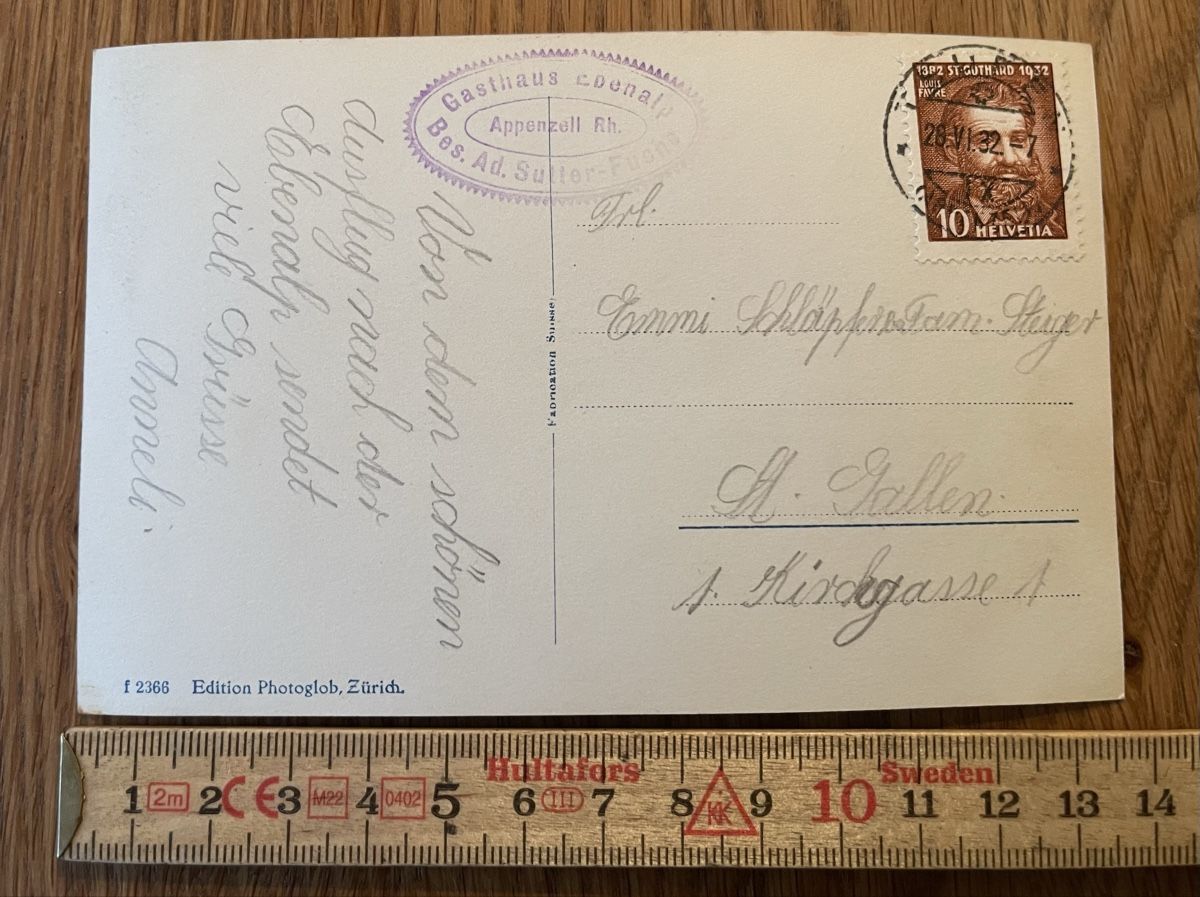 Gasthaus Ebenalp
Appenzell Rh.
Bes. Ad. Sutter-Fuchs
Von dem schönen
Ausflug nach der
Ebenalp sendet
viele Grüsse
Anneli
Fabrication Suisse
1882 ST. GOTHARD 1932
LOUIS
FAVRE
28.VI.32.-7
10 HELVETIA
Frl.
Emmi Schläpfer Fam. Steiger
St. Gallen.
1. Kirchgasse 1
f 2366 Edition Photoglob, Zürich.
Hultafors Sweden
1 2m 2 CE 3 M22 4 0402 5 6 III 7 8 KK 9 10 11 12 13 14